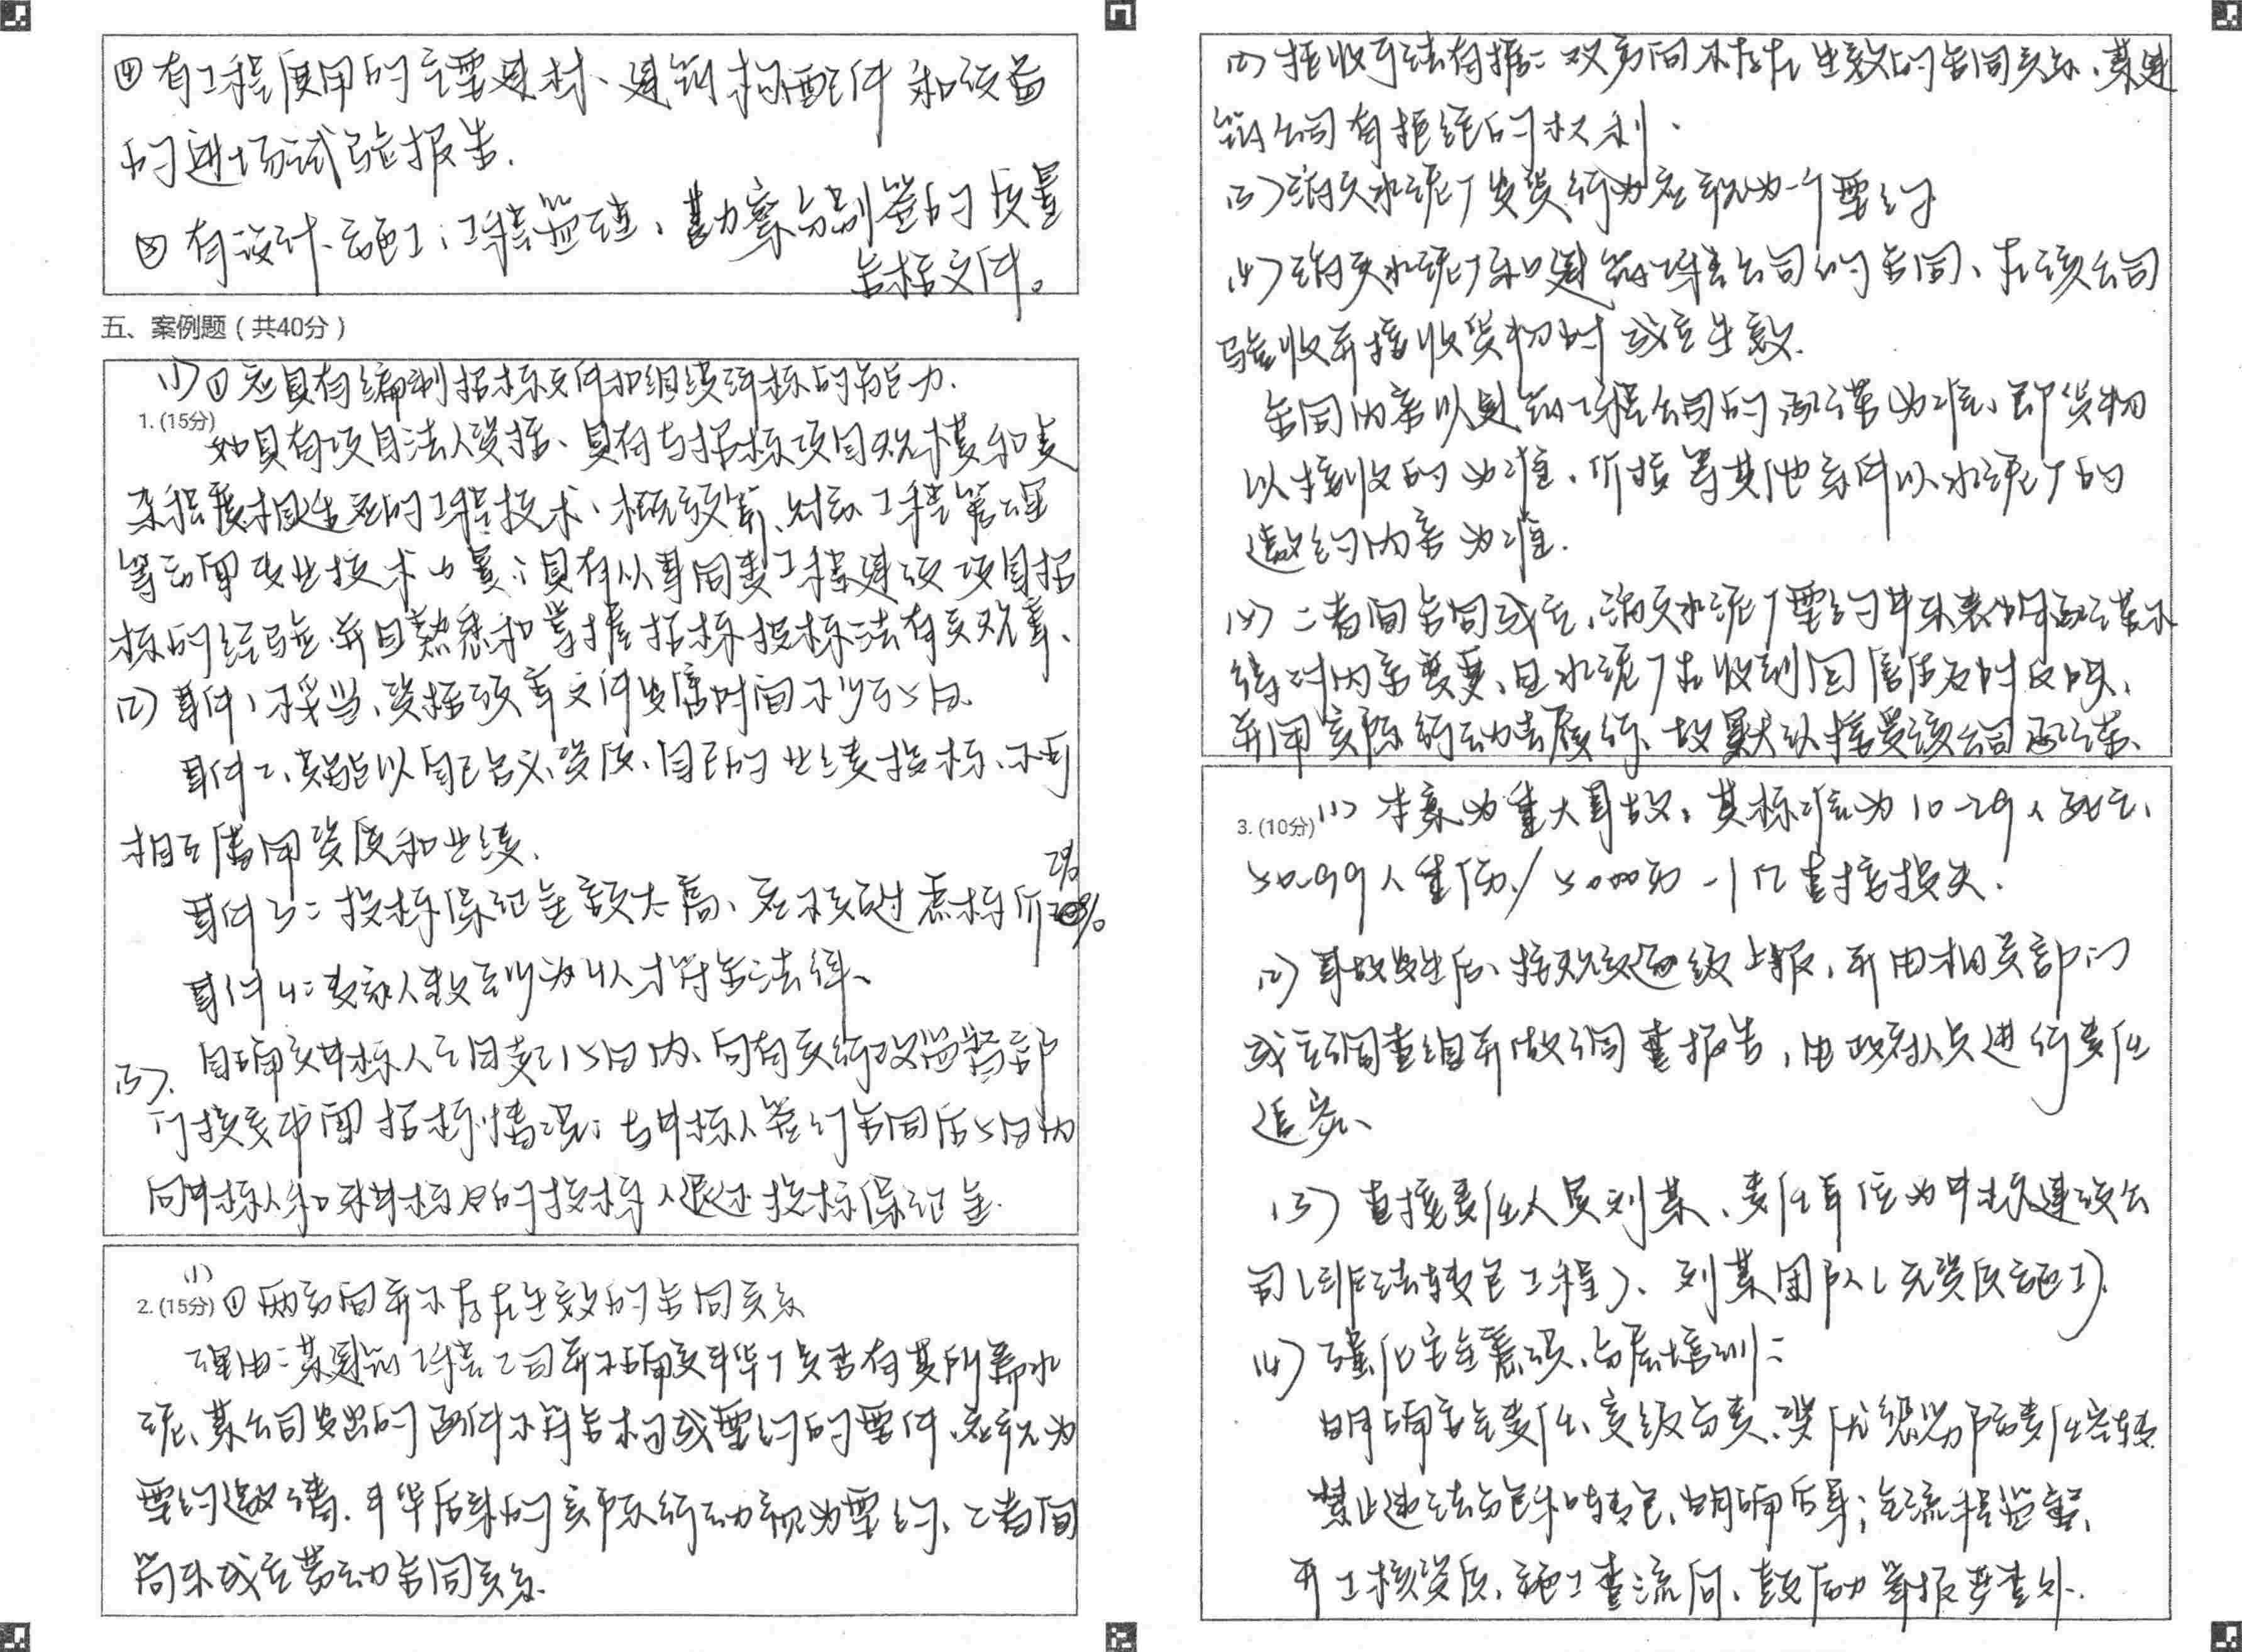 ④有工程使用的主要建材、建筑构配件和设备
的进场试验报告.
⑤有设计、施工、工程监理、勘察分别签的质量
合格文件。
五、案例题（共40分）
(1)①应具有编制招标文件和组织评标的能力.
1.(15分)
如具有项目法人资格、具有与招标项目规模和复
杂程度相适应的工程技术、概预算、财务工程管理
等方面专业技术力量；具有从事同类工程建设项目招
标的经验并且熟悉和掌握招标投标法有关规章、
(2)事件1不妥当、资格预审文件发售时间不少于5日.
事件2、只能以自己名义、资质、自己的业绩投标、不可
相互借用资质和业绩.
事件3:投标保证金额太高、应不超过总标价2%
事件4:专家人数至少为4人才符合法律、
(3).自确定中标人之日起15日内、向有关行政监督部
门提交书面招标情况；与中标人签约合同后5日内
向中标人和未中标的投标人退还投标保证金.
(1)
2.(15分)①两方间并不存在生效的合同关系
理由:某建筑工程公司并不确定丰华厂是否有其所需水
泥、某公司发出的函件不符合构成要约的要件、应视为
要约邀请.丰华后来的实际行动视为要约、二者间
尚未成立劳动合同关系.
(2)拒收于法有据:双方间不存在生效的合同关系、某建
筑公司有拒绝的权利.
(3)海天水泥厂发货行为应视为一个要约
(4)海天水泥厂和建筑工程公司的合同、在该公司
验收并接收货物时成立生效.
合同内容以建筑工程公司的承诺为准、即货物
以接收的为准、价格等其他条件以水泥厂的
邀约内容为准.
(5)二者间合同成立,海天水泥厂要约中未表明承诺不
得对内容变更、且水泥厂在收到回信后及时反映、
并用实际行动去履行、故默认接受该公司承诺、
3.(10分)(1)本案为重大事故,其标准为10-29人死亡、
50-99人重伤/5000万-1亿直接损失.
(2)事故发生后、按规定逐级上报,并由相关部门
成立调查组并做调查报告,由政府人员进行责任
追究、
(3)直接责任人员刘某、责任单位为中标建设公
司(非法转包工程)、刘某团队(无资质施工).
(4)强化安全意识、分层培训:
明确安全责任、层级分责、
禁止违法分包和转包,明确后果;全流程监察、
开工核资质、施工查流向、鼓励举报严查处.